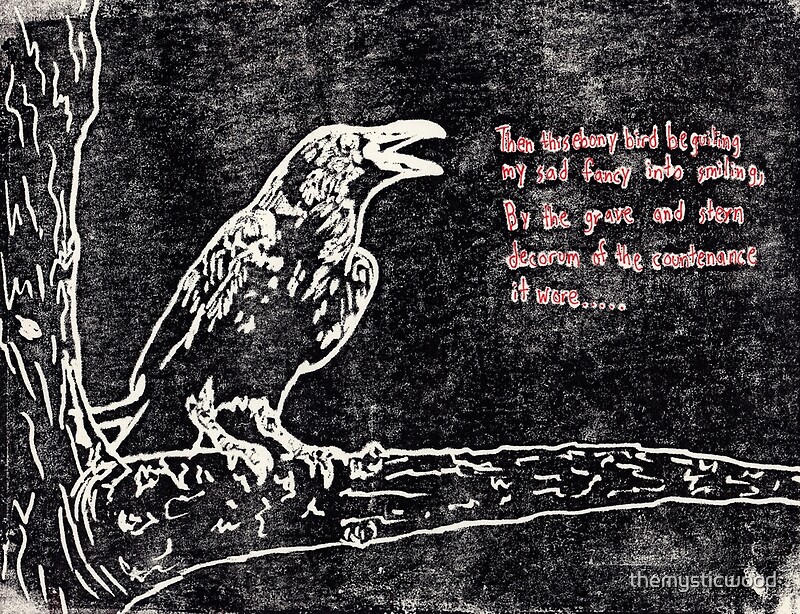 Then this ebony bird beguiling
my sad fancy into smiling,,
By the grave and stern
decorum of the countenance
it wore.....
themysticwood